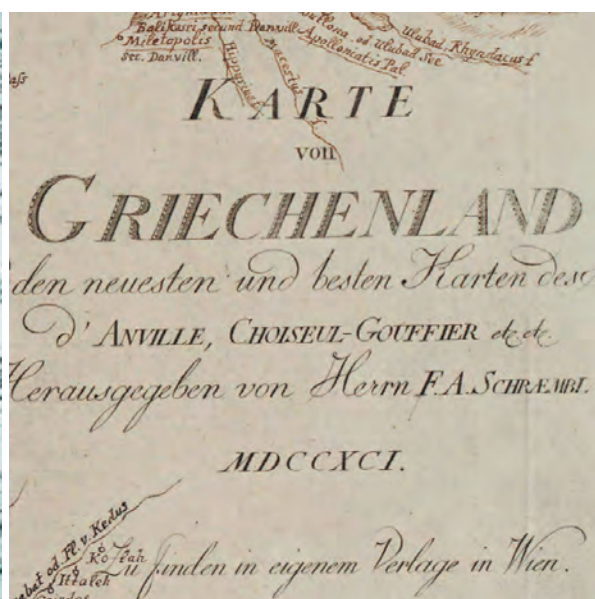 Balikesri secund Danvill.
Miletopolis
Sec. Danvill.
Ulubad.
Rhyndacus f
od. Ulubad See
Apolloniatis Pal.
Macestus f
KARTE
von
GRIECHENLAND
den neuesten und besten Karten des
d' ANVILLE, CHOISEUL-GOUFFIER etc. etc.
Herausgegeben von Herrn F. A. SCHRÆMBL.
MDCCXCI.
od. Fl. v. Kedus
Zu finden in eigenem Verlage in Wien.